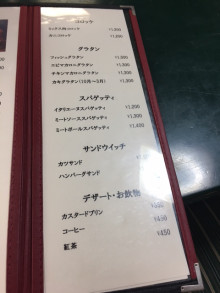 コロッケ
¥1,200
¥1,200
グラタン
フィッシュグラタン ¥1,300
エビマカロニグラタン ¥1,300
チキンマカロニグラタン ¥1,300
カキグラタン(10月〜3月) ¥1,300
スパゲッティ
イタリアーヌスパゲッティ ¥1,200
ミートソーススパゲッティ ¥1,200
ミートボールスパゲッティ ¥1,400
サンドウィッチ
カツサンド
ハンバーグサンド
デザート・お飲物
カスタードプリン
コーヒー
紅茶 ¥450